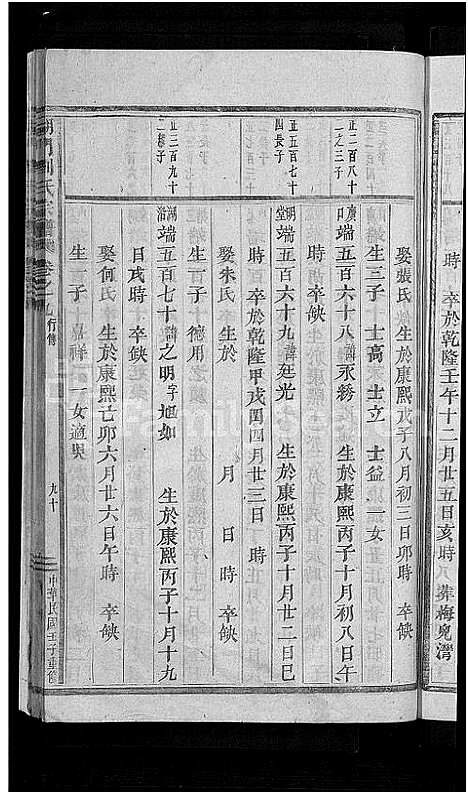 時　卒於乾隆壬午十二月廿五日亥時　葬梅兒灣
娶張氏　生於康熙戊子八月初三日卯時　卒缺
生三子　士高　士立　士益　一女
正二百八十
二之三子
廣端五百六十八諱永綉　生於康熙丙子十月初八日午
口
時　卒缺
正五百七十
四長子
明端五百六十九諱廷光　生於康熙丙子十月廿二日巳
堂
時　卒於乾隆甲戌閏四月廿三日　時
娶朱氏　生於　月　日　時　卒缺
生一子　德用
正二百九十
二穆子
湖端五百七十諱之明字旭如　生於康熙丙子十月十九
沿
日戌時　卒缺
娶何氏　生於康熙己卯六月廿六日午時　卒缺
生一子　嘉祥　一女適吳
劉氏宗譜　卷之九　行傳　九十　中華民國壬子重修